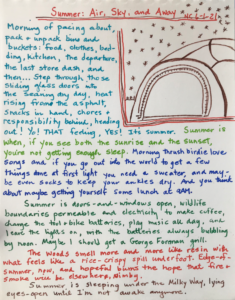 Summer: Air, Sky, and Away
Morning of pacing about
pack + unpack bins and
buckets: food, clothes, bed-
ding, kitchen, the departure,
the last store dash, and
then... Step through those
sliding glass doors into
the searing dry day, heat
rising from the asphalt,
snacks in hand, chores +
responsibility behind, heading
out! Yo! THAT feeling, YES! Its summer. Summer is
when, if you see both the sunrise and the sunset,
you're not getting enough sleep. Morning thrush birdie love
songs and if you go out into the world to get a few
things done at first light you need a sweater, and may-
be even socks to keep your ankles dry. And you think
about maybe getting yourself some lunch at 9AM.
Summer is doors-and-windows open, wildlife
boundaries permeable and electricity to make coffee,
change the hot-bike batteries, play music all day, and
lead the lights on, with the batteries always bubbling
by noon. Maybe I should get a George Foreman grill.
The woods smell more and more like resin with
what feels like a rice-crispy pill underfoot. Edge-of-
summer, now, and hopeful blurs the hope that fire +
smoke will be elsewhere, stinky.
Summer is sleeping under the Milky Way, lying
eyes-open until I'm not awake anymore.